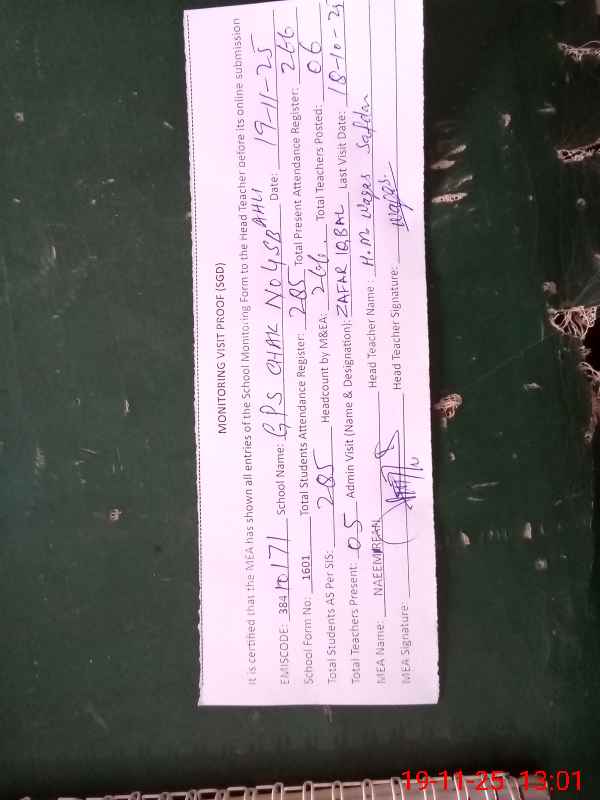 MONITORING VISIT PROOF (SGD)
It is certified that the MEA has shown all entries of the School Monitoring Form to the Head Teacher before its online submission
EMISCODE: 38410171 School Name: GPS CHAK No 4 SB AHLI Date: 19-11-25
School Form No: 1601 Total Students Attendance Register: 285 Total Present Attendance Register: 266
Total Students AS Per SIS: 285 Headcount by M&EA: 266. Total Teachers Posted: 06
Total Teachers Present: 05 Admin Visit (Name & Designation): ZAFAR IQBAL Last Visit Date: 18-10-25
MEA Name: NAEEM REAN Head Teacher Name: H.M Waqas Safdar
MEA Signature: Head Teacher Signature: Waqas.
19-11-25 13:01